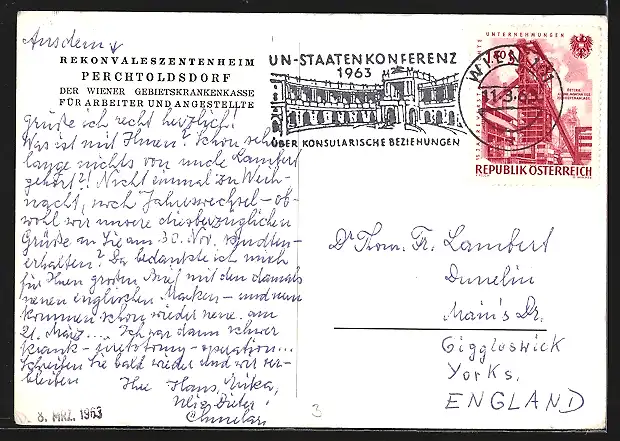 Aus dem
REKONVALESZENTENHEIM
PERCHTOLDSDORF
DER WIENER GEBIETSKRANKENKASSE
FÜR ARBEITER UND ANGESTELLTE
grüße ich recht herzlich!
Was ist mit Ihnen? Schon sehr
lange nichts von Lambert
gehört?! Nicht einmal zu Weih-
nacht, noch Jahreswechsel - ob-
wohl wir unsere diesbezüglichen
Grüße an Sie am 30. Nov. sandten -
erhalten? Da bedankte ich mich
für Ihren großen Brief mit den damals
neuen englischen Marken - und nun
kommen schon wieder neue am
21. März .... Ich war dann schwer
krank - operation...
Schreiben Sie bald wieder und wir ver-
bleiben Ihre Hans, Erika,
8. MRZ. 1963
UN-STAATENKONFERENZ
1963
ÜBER KONSULARISCHE BEZIEHUNGEN
WIEN
11.3.63
UNTERNEHMUNGEN
REPUBLIK ÖSTERREICH
Dr Thom. Fr. Lambert
Dunelin
Main's Dr.
Giggleswick
Yorks.
ENGLAND
3